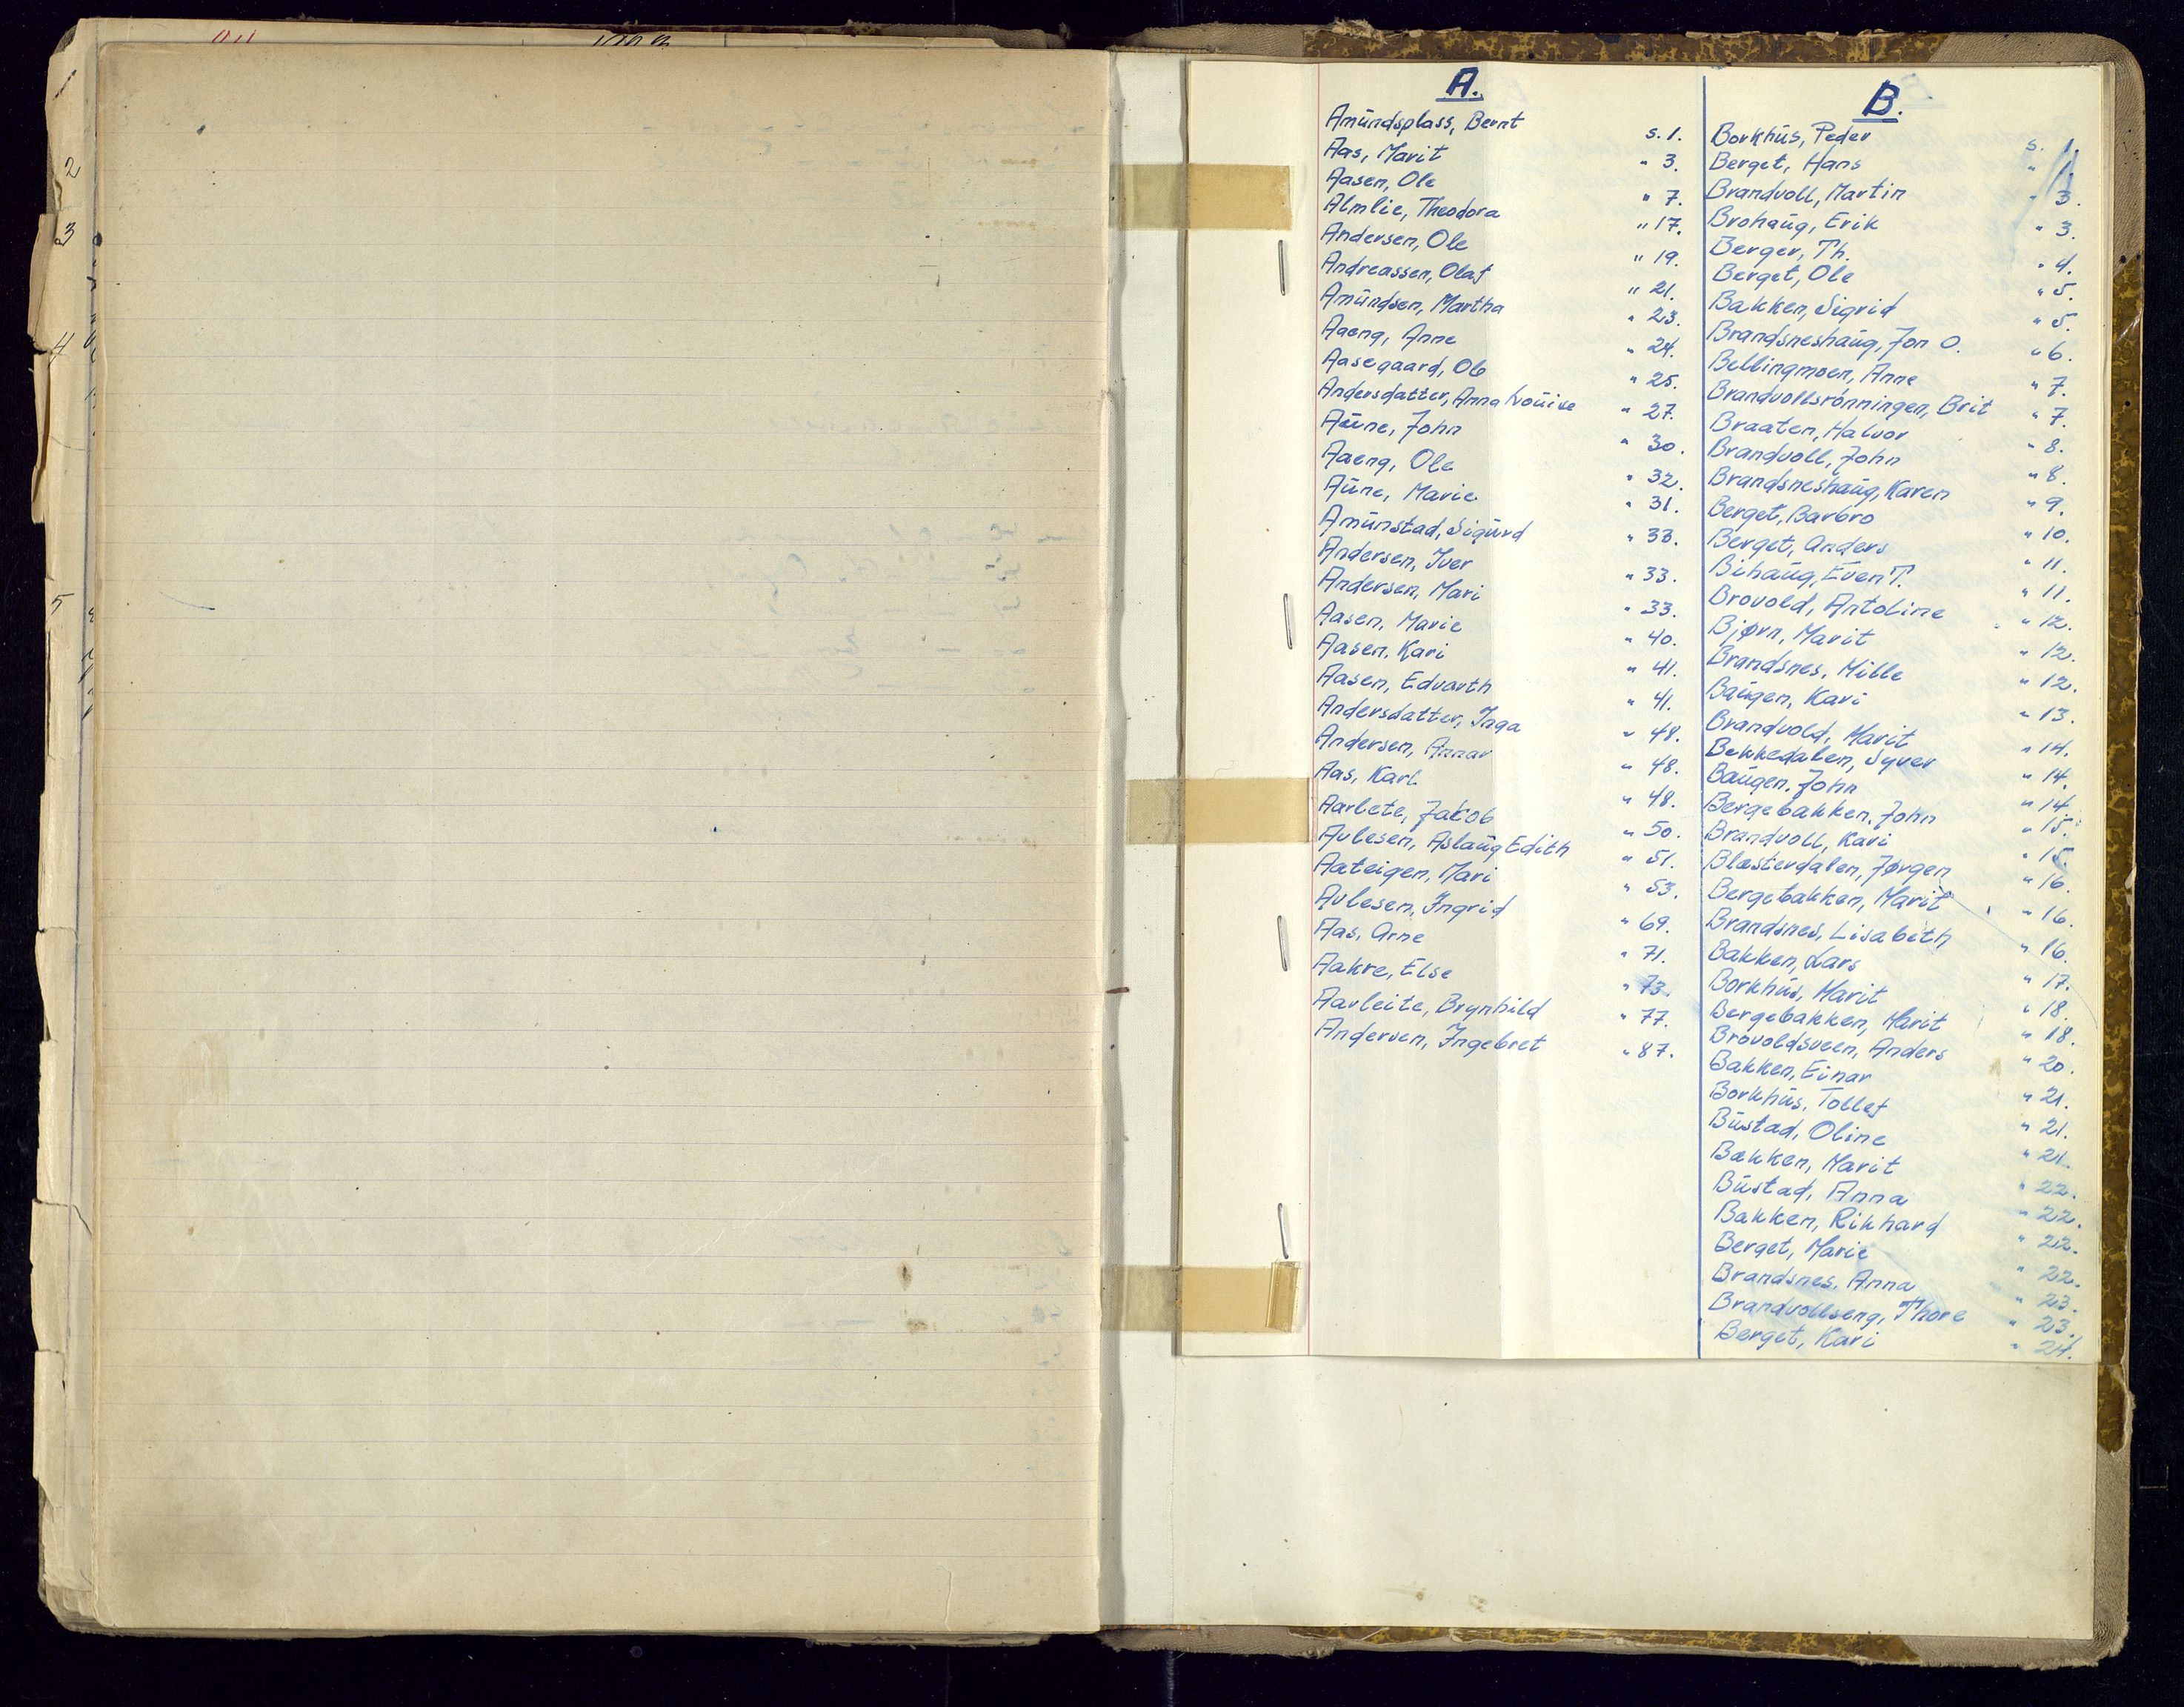 2
3
4
5
A.
Amundsplass, Bernt s. 1.
Aas, Marit " 3.
Aasen, Ole " 7.
Almlie, Theodora " 17.
Andersen, Ole " 19.
Andreassen, Olaf " 21.
Amundsen, Martha " 23.
Aaeng, Anne " 24.
Aasegaard, Ole " 25.
Andersdatter, Anna Lovise " 27.
Aune, John " 30.
Aaeng, Ole " 32.
Aune, Marie " 31.
Amunstad, Sigurd " 33.
Andersen, Iver " 33.
Andersen, Mari " 33.
Aasen, Marie " 40.
Aasen, Kari " 41.
Aasen, Edvarth " 41.
Andersdatter, Inga " 48.
Andersen, Annar " 48.
Aas, Karl " 48.
Aarlete, Jakob " 50.
Avlesen, Aslaug Edith " 51.
Aateigen, Mari " 53.
Avlesen, Ingrid " 69.
Aas, Arne " 71.
Aakre, Else " 73.
Aarleite, Brynhild " 77.
Andersen, Ingebret " 87.
B.
Borkhus, Peder s. 1.
Berget, Hans " 1.
Brandvoll, Martin " 3.
Brohaug, Erik " 3.
Berger, Th. " 4.
Berget, Ole " 5.
Bakken, Sigrid " 5.
Brandsneshaug, Jon O. " 6.
Bellingmoen, Anne " 7.
Brandvollsrønningen, Brit " 7.
Braaten, Halvor " 8.
Brandvoll, John " 8.
Brandsneshaug, Karen " 9.
Berget, Barbro " 10.
Berget, Anders " 11.
Bihaug, Even T. " 11.
Brovold, Antoline " 12.
Bjørn, Marit " 12.
Brandsnes, Mille " 12.
Baugen, Kari " 13.
Brandvold, Marit " 14.
Bekkedalen, Syver " 14.
Baugen, John " 14.
Bergebakken, John " 15.
Brandvoll, Kari " 15.
Blæsterdalen, Jørgen " 16.
Bergebakken, Marit " 16.
Brandsnes, Lisabeth " 16.
Bakken, Lars " 17.
Borkhus, Marit " 18.
Bergebakken, Marit " 18.
Brovoldsveen, Anders " 20.
Bakken, Einar " 21.
Borkhus, Tollef " 21.
Bustad, Oline " 21.
Bakken, Marit " 22.
Bustad, Anna " 22.
Bakken, Rikhard " 22.
Berget, Marie " 22.
Brandsnes, Anna " 23.
Brandvollseng, Thore " 23.
Berget, Kari " 24.